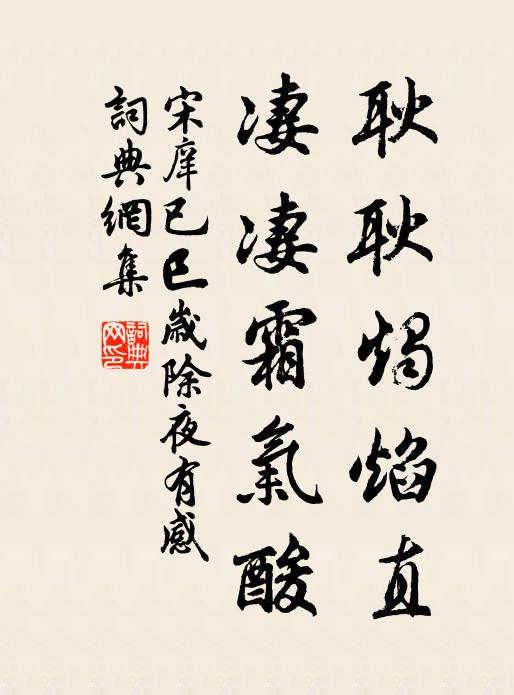 耿耿燭焰直
淒淒霜氣酸
宋庠己巳歲除夜有感
詞典網集
詞典
网印